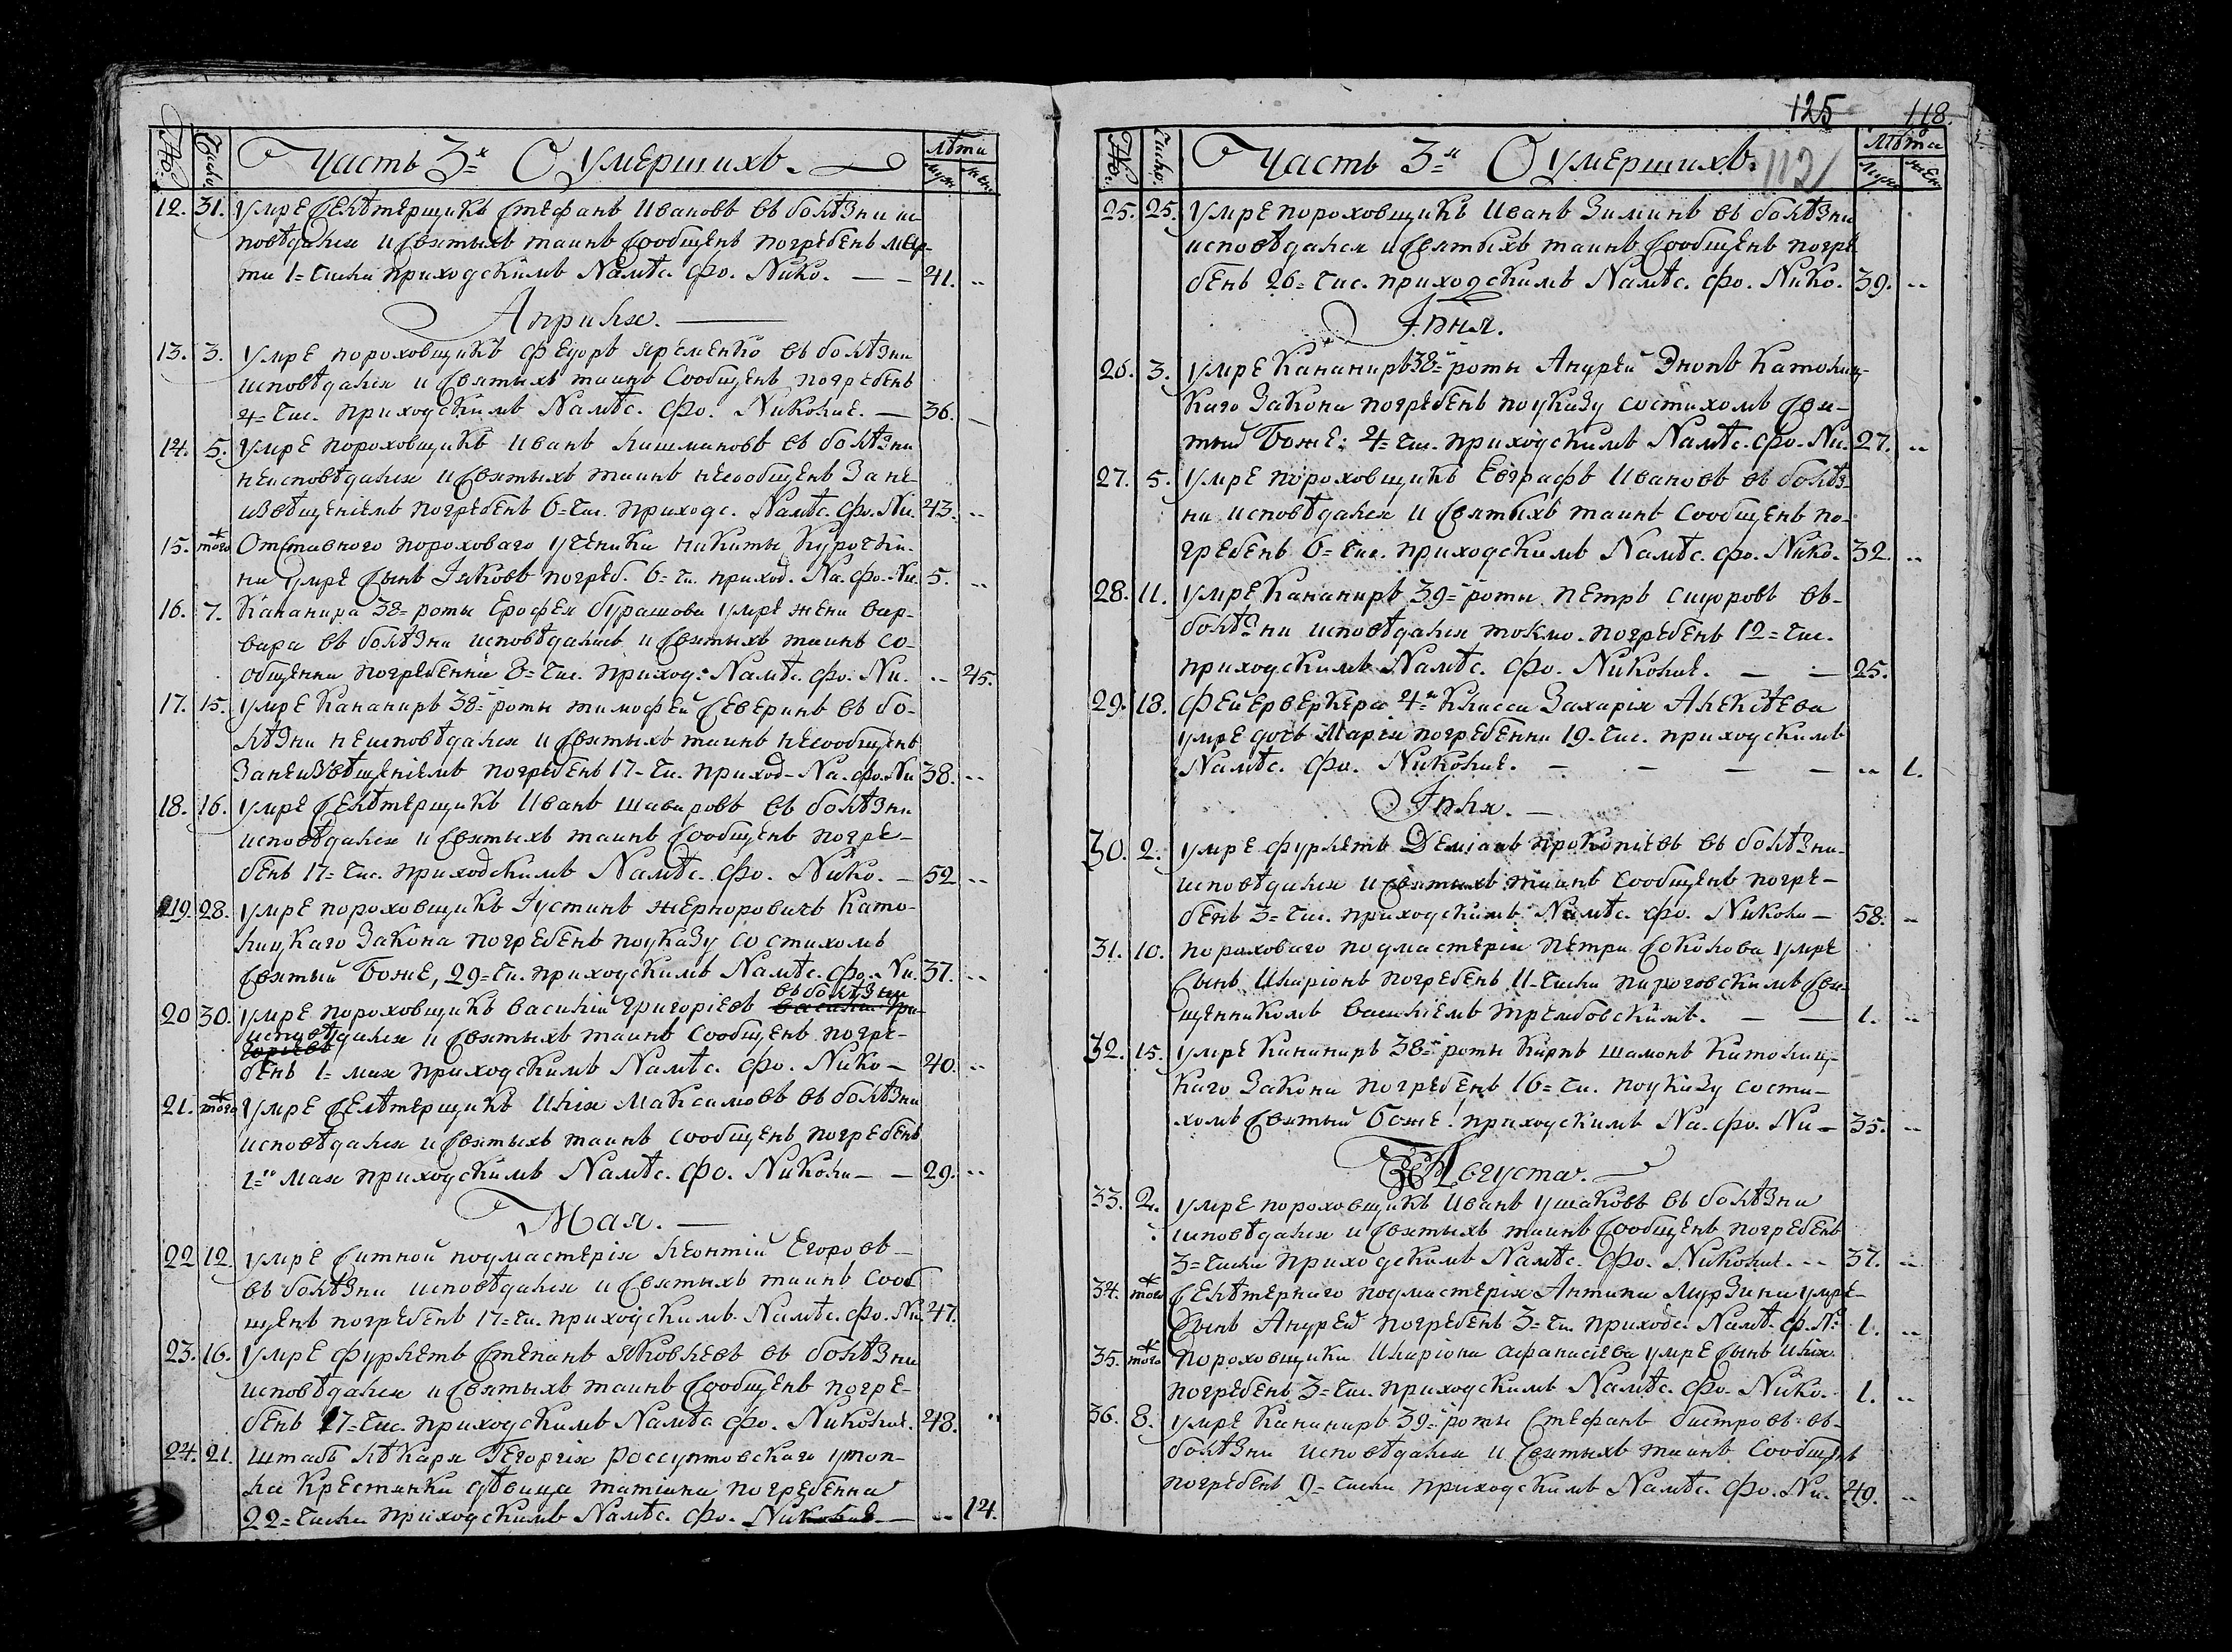 № Число Часть 3-я О Умершихъ. Лѣта муж. жен.
12. 31. Умре Селѣтерщикъ Стефанъ Ивановъ въ болѣзни ис-
повѣдался и Святыхъ таинъ Сообщенъ погребенъ мар-
та 1= числа приходскимъ Намѣс. Фо. Нико. — — 41. --
Апрѣля.
13. 3. Умре пороховщикъ Федоръ Яременко въ болѣзни
исповѣдался и Святыхъ таинъ Сообщенъ погребенъ
4= чис. приходскимъ Намѣс. Фо. Николае. — 36. —
14. 5. Умре пороховщикъ Иванъ Лишмановъ въ болѣзни
неисповѣдался и Святыхъ таинъ несообщенъ За не-
извѣщеніемъ погребенъ 6= чи. приходс. Намѣс. Фо. Ни. 43. --
15. того Отставного пороховаго ученика Никиты Курочки-
на Умре Сынъ Іяковъ погреб. 6= чи. приход. На. Фо. Ни. 5. --
16. 7. Кананира 38= роты Ерофея Бурашова умре жена Вар-
вара въ болѣзни исповѣдалась и Святыхъ таинъ со-
общенна погребенна 8= чис. приход. Намѣс. Фо. Ни. -- 45.
17. 15. Умре Кананиръ 38= роты Тимофей Северинъ въ бо-
лѣзни неисповѣдался и Святыхъ таинъ несообщенъ
Занеизвѣщеніемъ погребенъ 17- чи. приход- На. Фо. Ни 38. --
18. 16. Умре Селѣтерщикъ Иванъ Шавировъ въ болѣзни
исповѣдался и Святыхъ таинъ Сообщенъ погре-
бенъ 17= чис. приходскимъ Намѣс. Фо. Нико. — 52 --
19. 28. Умре пороховщикъ Іустинъ Жерноровичъ Като-
лицкаго Закона погребенъ поуказу со стихомъ
Святый Боже, 29= чи. приходскимъ Намѣс. Фо. Ни. 37. --
20 30. Умре пороховщикъ Василій Григоріевъ въ болѣзни Василій Гри-
исповѣдался и Святыхъ таинъ Сообщенъ погре-
горіевъ
бенъ 1= мая приходскимъ Намѣс. Фо. Нико — 40. --
21. того Умре Селѣтерщикъ Илія Максимовъ въ болѣзни
исповѣдался и Святыхъ таинъ сообщенъ погребенъ
1=го Мая приходскимъ Намѣс. Фо. Никола — — 29. --
Мая. —
22 12. Умре Ситной подмастерія Леонтій Егоровъ —
въ болѣзни исповѣдался и Святыхъ таинъ Сооб
щенъ погребенъ 17= чи. приходскимъ Намѣс. Фо. Ни 47.
23. 16. Умре Фурлетъ Степанъ Яковлевъ въ болѣзни
исповѣдался и Святыхъ таинъ Сообщенъ погре-
бенъ 17= чис. приходскимъ Намѣс Фо. Николае. 48. --
24. 21. Штабъ Лѣкаря Георгія Россунтовскаго утоп-
ла Крестянка дѣвица Татіана погребенна
22= числа приходскимъ Намѣс. Фо. Николае — -- 14.
125 118.
№ Число. Часть 3-я О Умершихъ. 112 Лѣта Муж. жен.
25. 25. Умре пороховщикъ Иванъ Зиминъ въ болѣзни
исповѣдался и Святыхъ таинъ Сообщенъ погре
бенъ 26= чис. приходскимъ Намѣс. Фо. Нико. 39. --
Іюня.
26. 3. Умре Кананиръ 38= роты Андрей Зноп Католиц-
каго Закона погребенъ поуказу состихомъ Свя-
тый Боже: 4= чи. приходскимъ Намѣс. Фо. Ни. 27. --
27. 5. Умре пороховщикъ Евграфъ Ивановъ въ болѣз-
ни исповѣдался и Святыхъ таинъ Сообщенъ по-
гребенъ 6= чис. приходскимъ Намѣс. Фо. Нико. 32. --
28. 11. Умре Кананиръ 39= роты Петръ Сидоровъ въ-
болѣзни исповѣдался токмо. погребенъ 12= чис.
приходскимъ Намѣс. Фо. Николае. — — 25.
29. 18. Фейерверкера 4= Класса Захарія Алексѣева
умре дочь Марія погребенна 19- чис. приходскимъ
Намѣс. Фо. Николае. — — — — -- 1.
Іюля. —
30. 2. Умре фурлетъ Деміанъ Прокопіевъ въ болѣзни-
исповѣдался и Святыхъ таинъ Сообщенъ погре-
бенъ 3= чис. приходскимъ Намѣс. Фо. Никола — 58. --
31. 10. Пороховаго подмастерія Петра Соколова Умре
Сынъ Иларіонъ погребенъ 11- числа пироговскимъ Свя-
щенникомъ Василіемъ Трембовскимъ. — — 1. --
32. 15. Умре Кананиръ 38= роты Кирпъ Шамонъ Католиц-
каго Закона погребенъ 16= чи. поуказу сости-
хомъ Святый Боже. приходскимъ На. Фо. Ни — 35. --
Августа. —
33. 2. Умре пороховщикъ Иванъ Ушаковъ въ болѣзни
исповѣдался и Святыхъ таинъ Сообщенъ погребенъ
3= числа приходскимъ Намѣс. Фо. Николае. -- 37. --
34. того Селѣтернаго подмастерія Антипа Мурзина умре-
Сынъ Андрей погребенъ 3= чи. приходс. Намѣ. Ф. Н= 1. --
35. того Пороховщика Иларіона Афанасіева умре Сынъ Илія
погребенъ 3= чис. приходскимъ Намѣс. Фо. Нико. 1. --
36. 8. Умре Кананиръ 39= роты Стефанъ Бистровъ въ-
болѣзни исповѣдался и Святыхъ таинъ Сообщенъ
погребенъ 9= числа приходскимъ Намѣс. Фо. Ни. 49. --